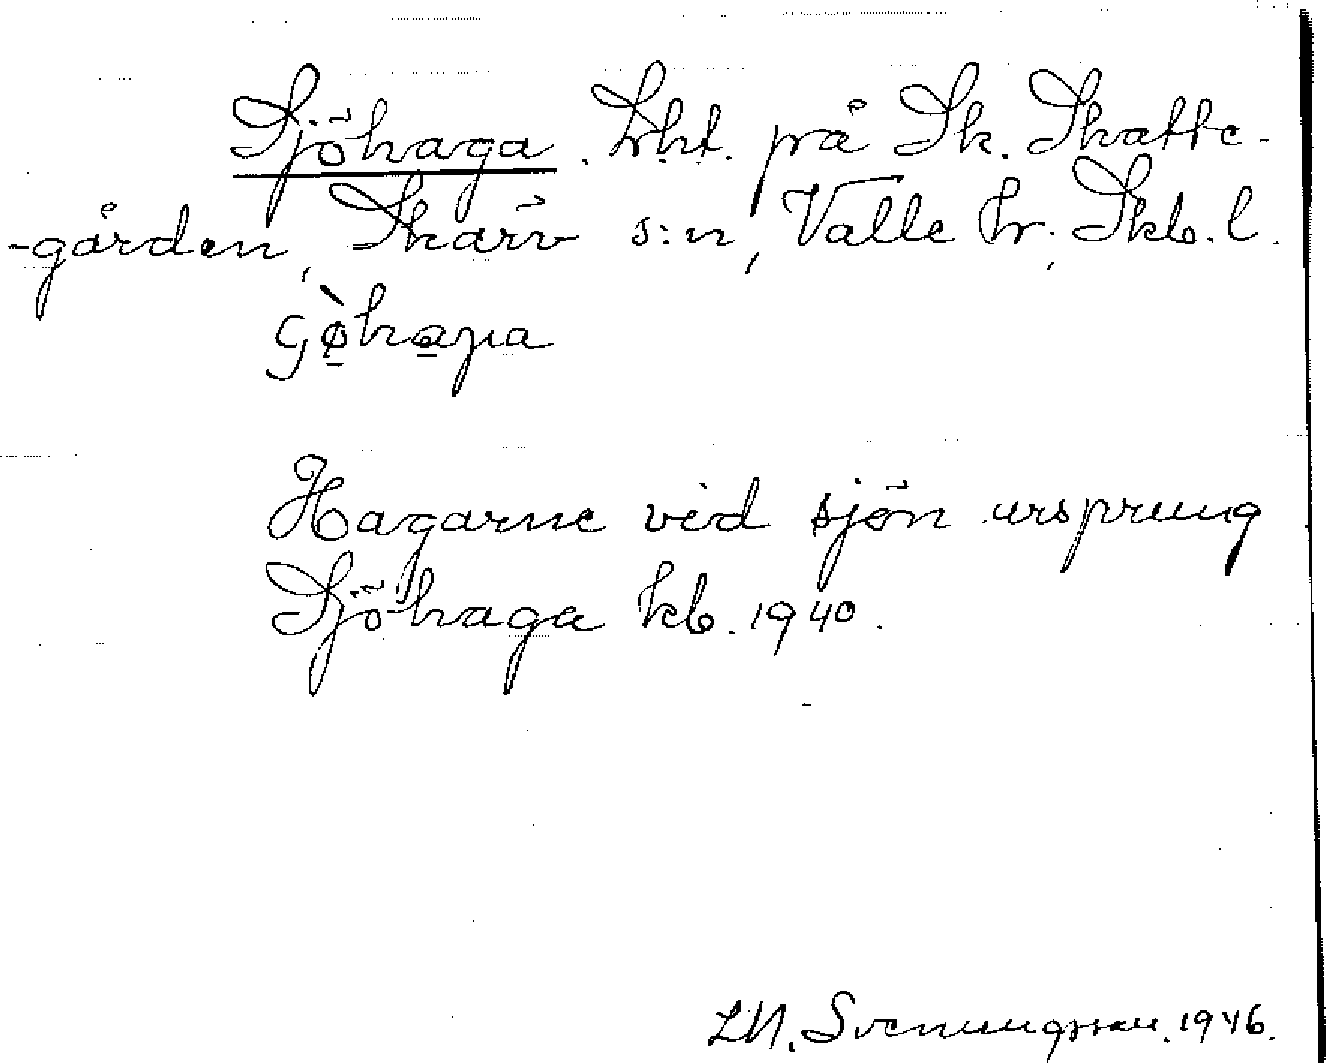 Sjöhaga. Lht. på Sk. Skatte-
-gården, Skärv s:n, Valle hr, Skb. l.
Hagarne vid sjön ursprung
Sjöhaga kb. 1940.
Svenungsson. 1946.